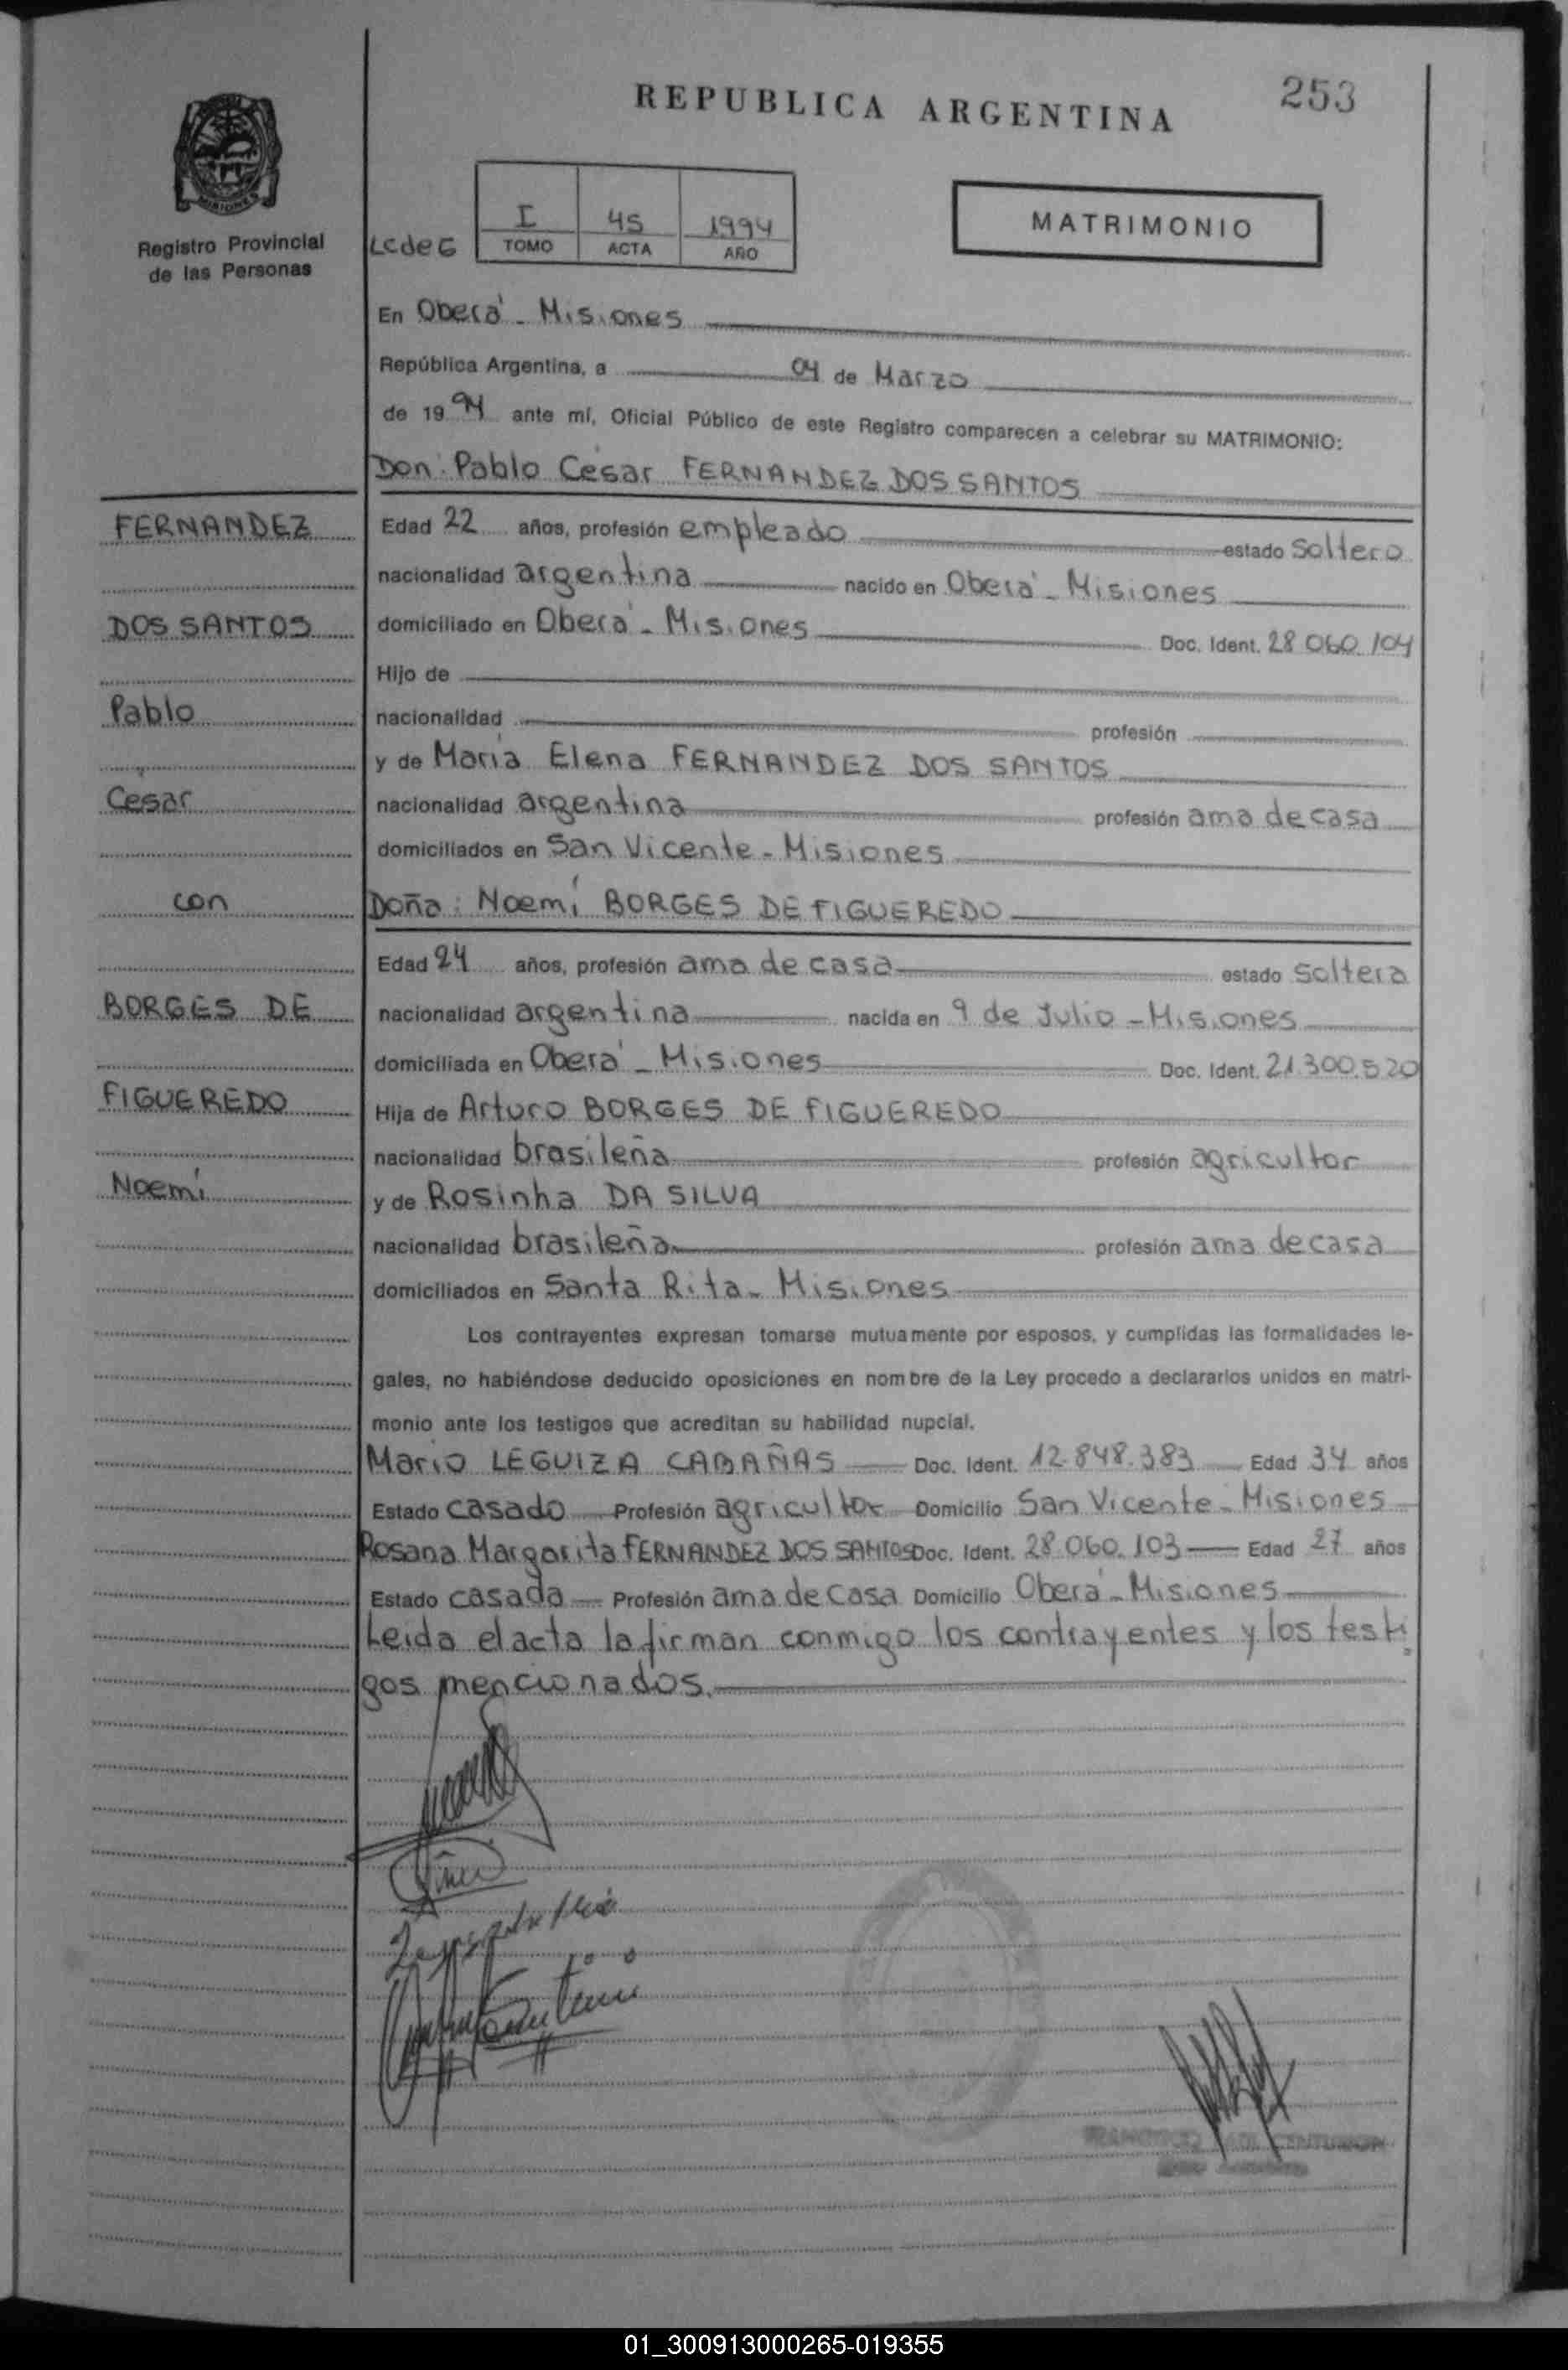 253
REPUBLICA ARGENTINA
MISIONES
Registro Provincial
de las Personas
I 45 1994
TOMO ACTA AÑO
MATRIMONIO
En Oberá - Misiones
República Argentina, a 04 de Marzo
de 1994 ante mí, Oficial Público de este Registro comparecen a celebrar su MATRIMONIO:
Don: Pablo César FERNANDEZ DOS SANTOS
FERNANDEZ
DOS SANTOS
Pablo
César
con
BORGES DE
FIGUEREDO
Noemí
Edad 22 años, profesión empleado estado soltero
nacionalidad argentina nacido en Oberá - Misiones
domiciliado en Oberá - Misiones Doc. Ident. 28.060.104
Hijo de
nacionalidad profesión
y de María Elena FERNANDEZ DOS SANTOS
nacionalidad argentina profesión ama de casa
domiciliados en San Vicente - Misiones
Doña: Noemí BORGES DE FIGUEREDO
Edad 24 años, profesión ama de casa estado soltera
nacionalidad argentina nacida en 9 de Julio - Misiones
domiciliada en Oberá - Misiones Doc. Ident. 21.300.520
Hija de Arturo BORGES DE FIGUEREDO
nacionalidad brasileña profesión agricultor
y de Rosinha DA SILVA
nacionalidad brasileña profesión ama de casa
domiciliados en Santa Rita - Misiones
Los contrayentes expresan tomarse mutuamente por esposos, y cumplidas las formalidades le-
gales, no habiéndose deducido oposiciones en nombre de la Ley procedo a declararlos unidos en matri-
monio ante los testigos que acreditan su habilidad nupcial.
Mario LEGUIZA CABAÑAS Doc. Ident. 12.848.383 Edad 34 años
Estado casado Profesión agricultor Domicilio San Vicente - Misiones
Rosana Margarita FERNANDEZ DOS SANTOS Doc. Ident. 28.060.103 Edad 27 años
Estado casada Profesión ama de casa Domicilio Oberá - Misiones
Leida el acta la firman conmigo los contrayentes y los testi
gos mencionados.
CENTURION
01_300913000265-019355